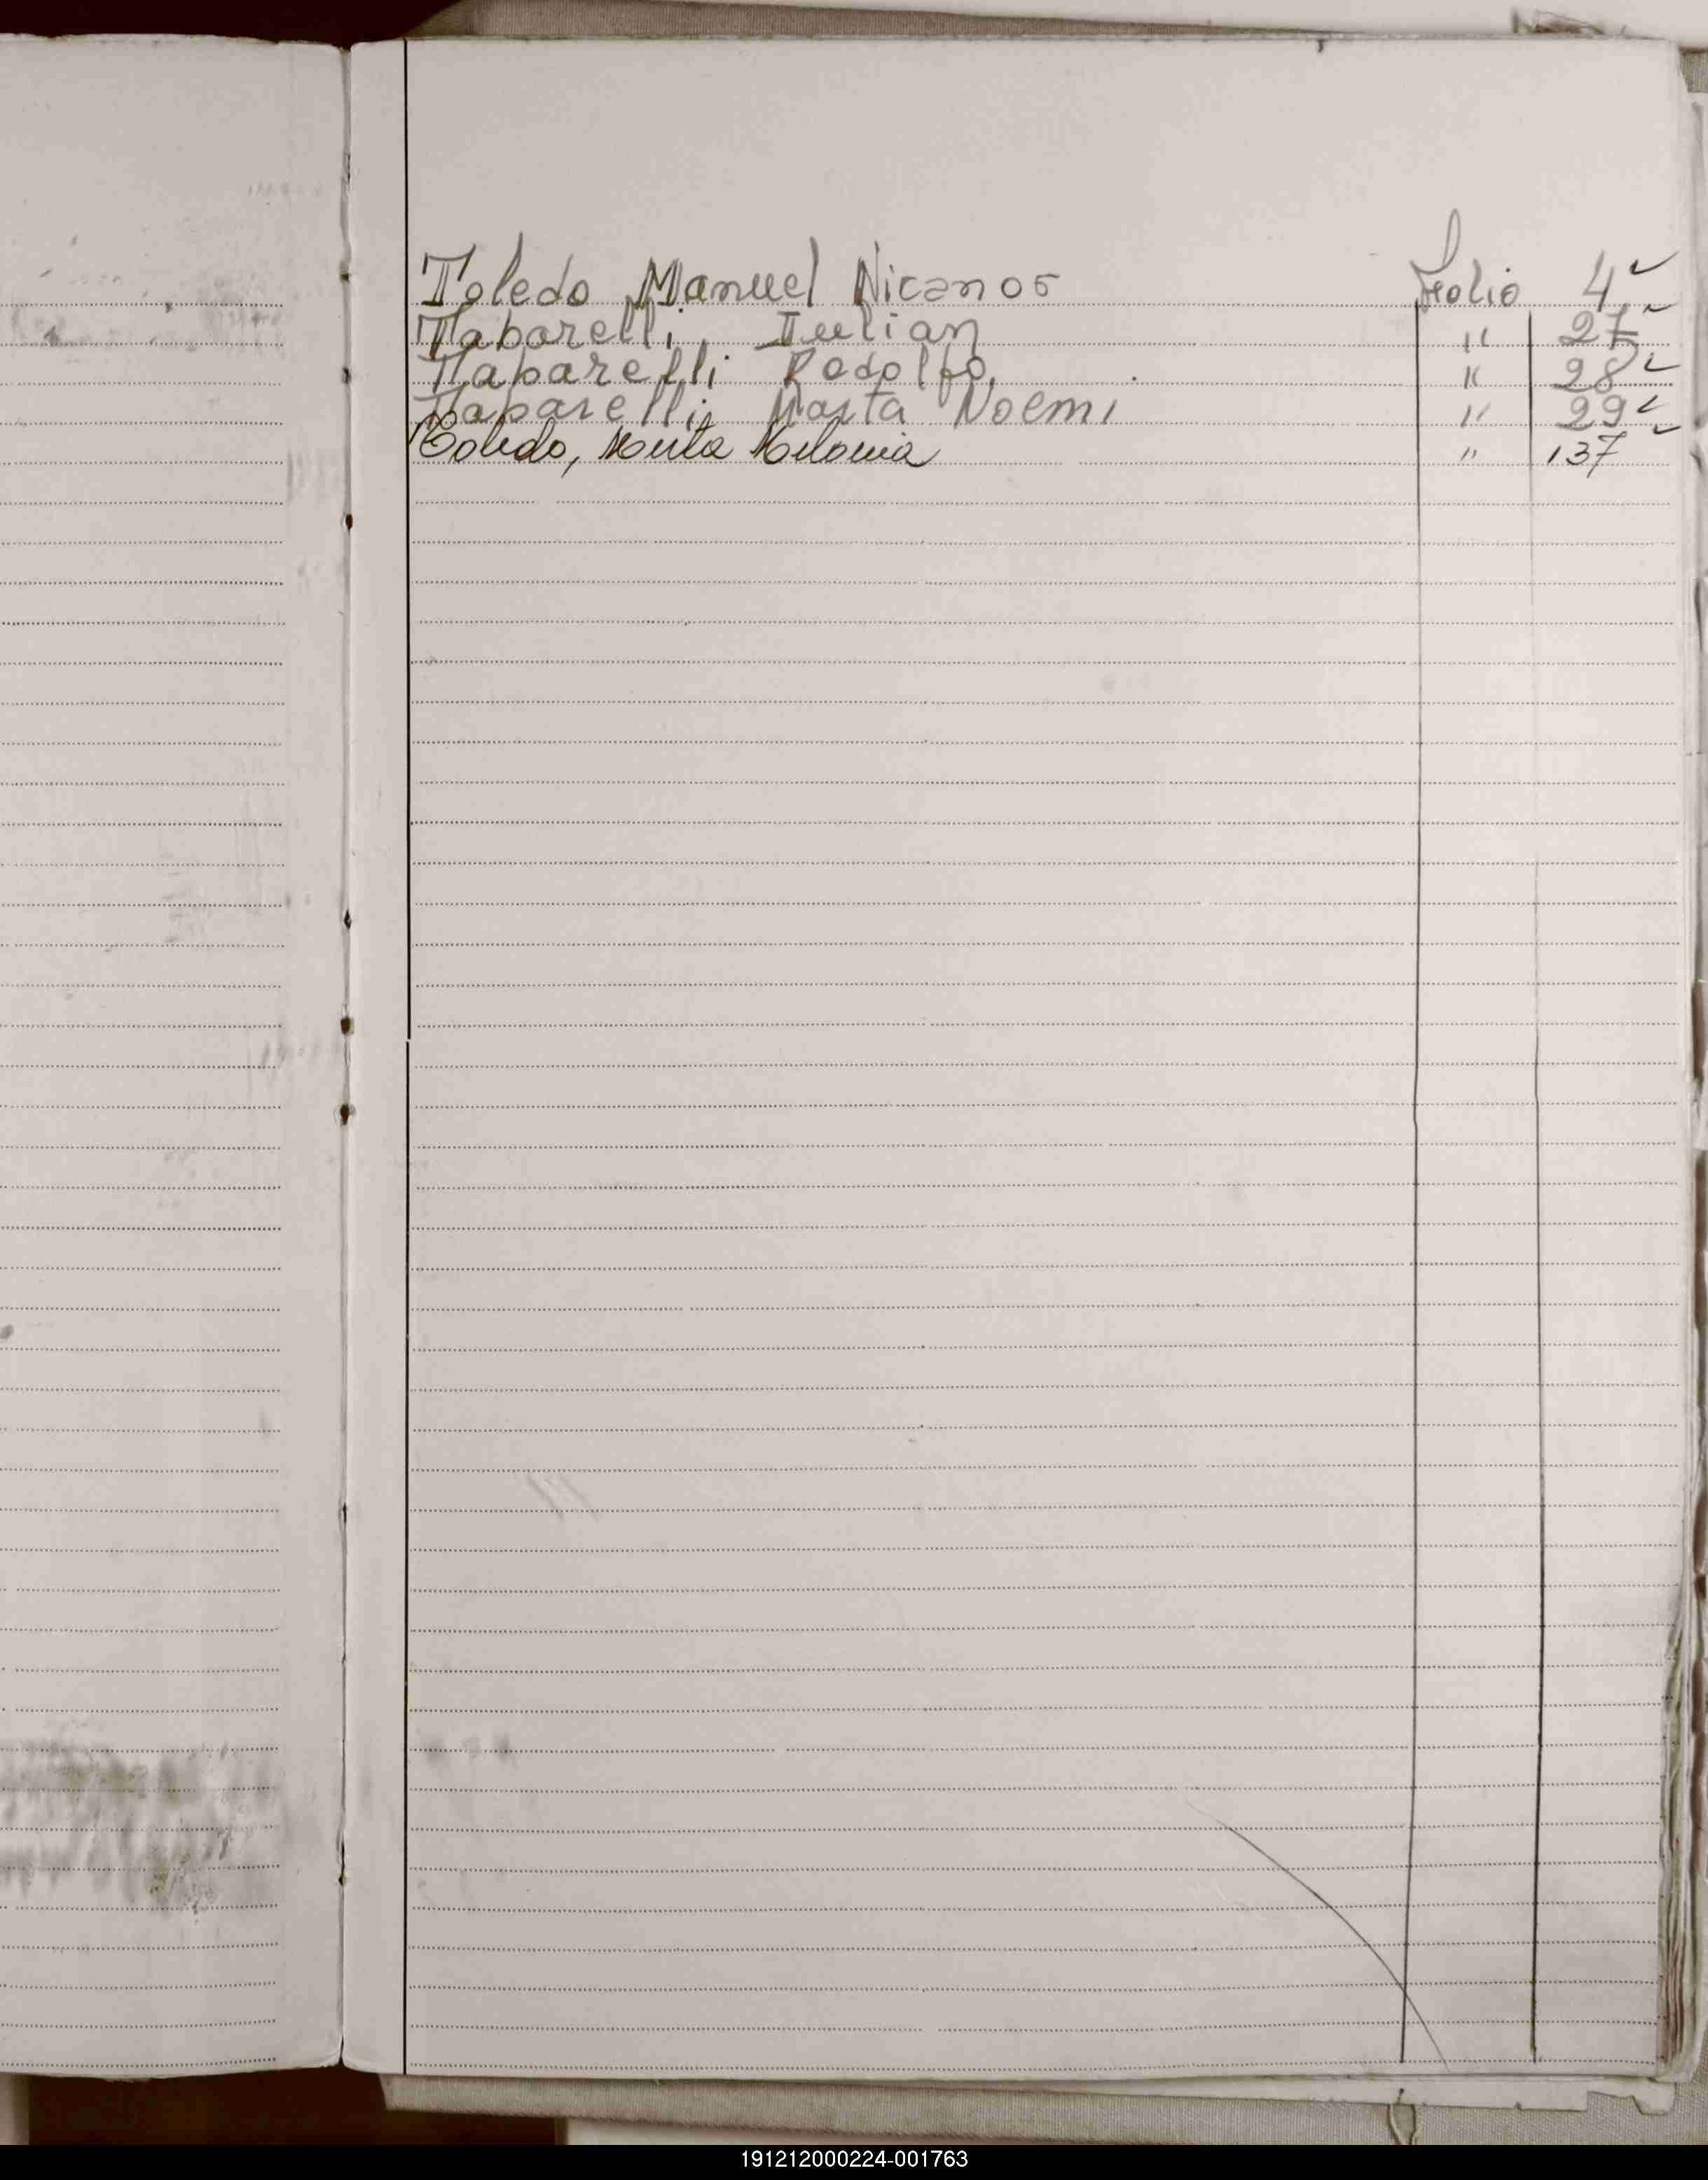 Toledo Manuel Nicanor Folio 4
Taparelli, Iulian " 27
Taparelli Rodolfo, " 28
Taparelli, Marta Noemi " 29
Toledo, " 137
191212000224-001763